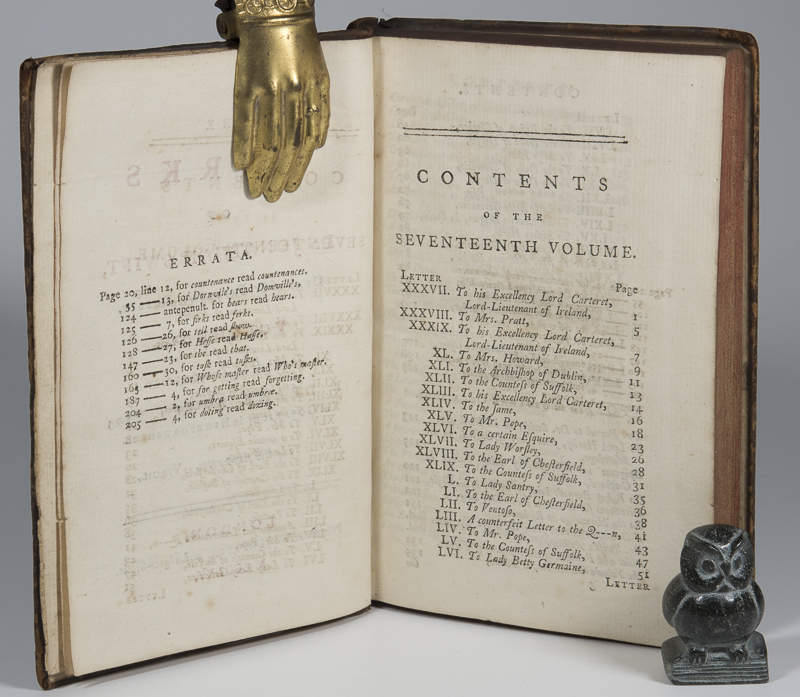 ERRATA.
Page 20, line 12, for countenance read countenances.
35 —— 13, for Dornvile's read Domville's.
124 —— antepenult. for bears read hears.
125 —— 7, for firks read ferks.
126 —— 26, for tell read ſhow.
128 —— 27, for Heſſe read Haſſe.
147 —— 23, for the read that.
160 —— 30, for tuſk read tuſks.
165 —— 12, for Whoſe maſter read Who's maſter.
187 —— 4, for for getting read forgetting.
204 —— 2, for umbra read umbræ.
205 —— 4, for doting read dozing.
CONTENTS
OF THE
SEVENTEENTH VOLUME.
LETTER Page
XXXVII. To his Excellency Lord Carteret,
Lord-Lieutenant of Ireland, 1
XXXVIII. To Mrs. Pratt, 5
XXXIX. To his Excellency Lord Carteret,
Lord-Lieutenant of Ireland, 7
XL. To Mrs. Howard, 9
XLI. To the Archbiſhop of Dublin, 11
XLII. To the Counteſs of Suffolk, 13
XLIII. To his Excellency Lord Carteret, 14
XLIV. To the ſame, 16
XLV. To Mr. Pope, 18
XLVI. To a certain Eſquire, 23
XLVII. To Lady Worſley, 26
XLVIII. To the Earl of Cheſterfield, 28
XLIX. To the Counteſs of Suffolk, 31
L. To Lady Santry, 35
LI. To the Earl of Cheſterfield, 36
LII. To Ventoſo, 38
LIII. A counterfeit Letter to the Q---n, 41
LIV. To Mr. Pope, 43
LV. To the Counteſs of Suffolk, 47
LVI. To Lady Betty Germaine, 51
LETTER